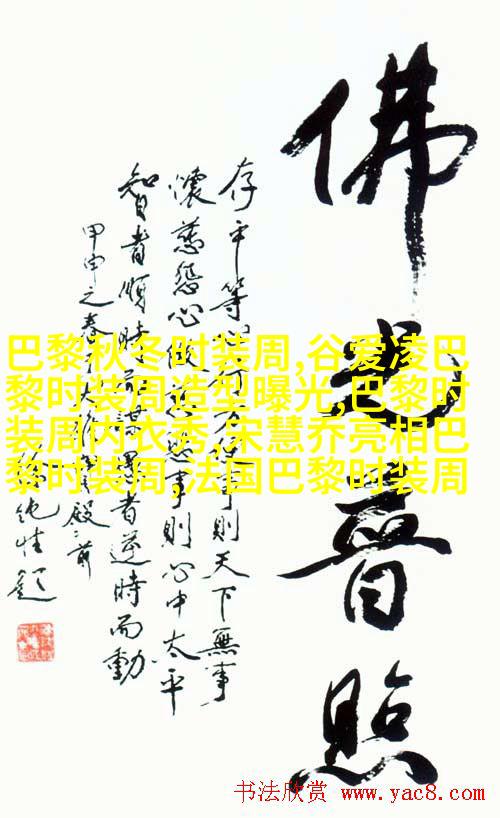 佛光普照
存平等心行方便事則天下無事
懷慈悲心做慈悲事則心中太平
智者順時而謀愚者逆時而動
甲申之春大雄殿前
巴黎秋冬时装周,谷爱凌巴
黎时装周造型曝光,巴黎时
装周内衣秀,宋慧乔亮相巴
黎时装周,法国巴黎时装周
书法欣赏 www.yac8.com